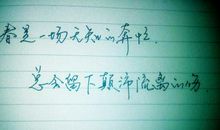 春是一场无知的奔忙
总会留下颠沛流离的伤